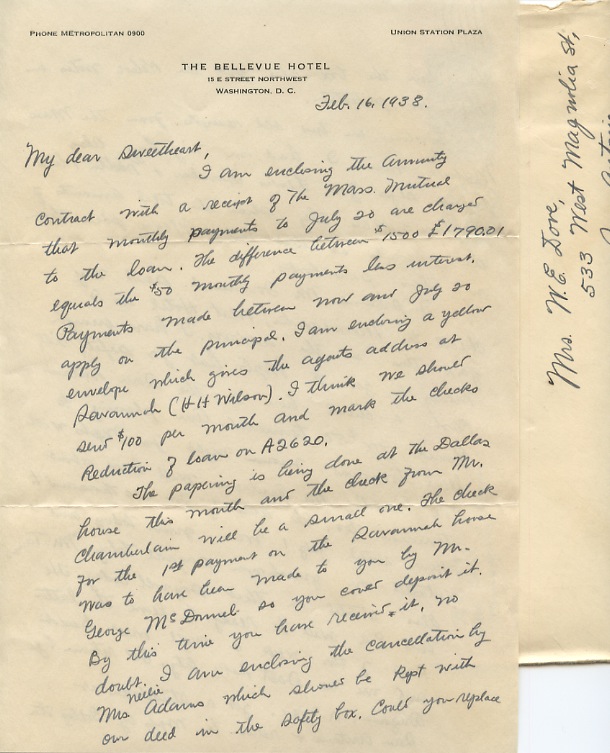 PHONE METROPOLITAN 0900
UNION STATION PLAZA
THE BELLEVUE HOTEL
15 E STREET NORTHWEST
WASHINGTON, D. C.
Feb. 16, 1938.
My dear Sweetheart,
I am enclosing the Annuity
Contract with a receipt of The Mass. Mutual
that monthly payments to July 20 are charged
to the loan. The difference between $1500 & $1790.01
equals the $50 monthly payments less interest.
Payments made between now and July 20
apply on the principal. I am enclosing a yellow
envelope which gives the agents address at
Savannah (H H Wilson). I think we should
send $100 per month and mark the checks
Reduction of loan on A2620.
The papering is being done at the Dallas
house this month and the check from Mr.
Chamberlain will be a small one. The check
for the 1st payment on the Savannah house
was to have been made to you by Mr.
George McDonnel so you could deposit it.
By this time you have received it, no
doubt. I am enclosing the cancellation by
Mrs Nellie Adams which should be kept with
our deed in the safety box. Could you replace
Mrs. W.E. Dove,
533 West Magnolia St,